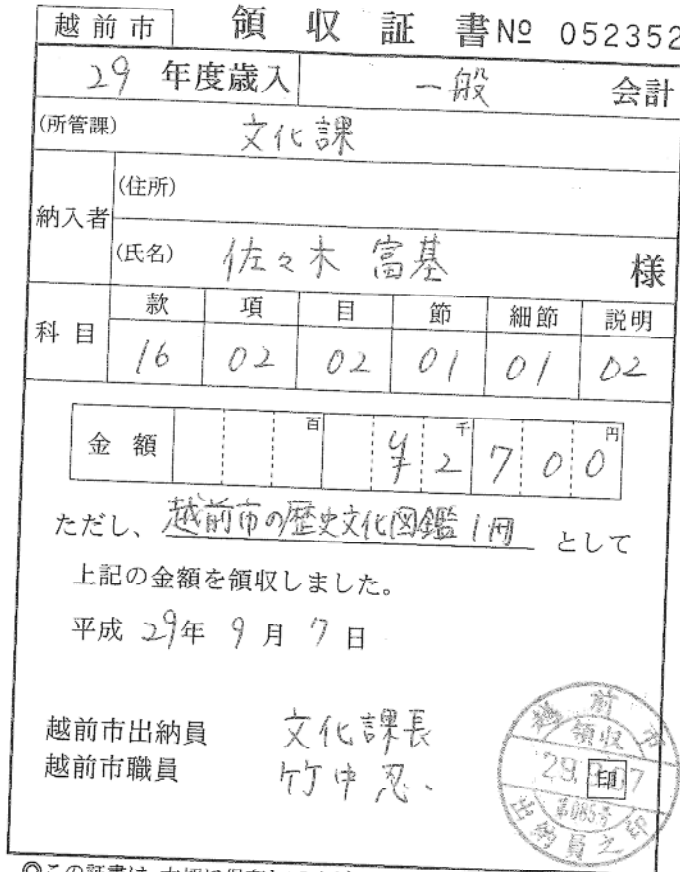 越前市 領収証書 № 052352
29 年度歳入 一般 会計
(所管課) 文化課
納入者 (住所)
(氏名) 佐々木 富基 様
科目 款 項 目 節 細節 説明
16 02 02 01 01 02
金額 百 千 円
¥2700
ただし、越前市の歴史文化図鑑1冊 として
上記の金額を領収しました。
平成 29年 9月 7日
越前市出納員 文化課長
越前市職員 竹中 忍
越前市
領収
29. 9.07
印
第085号
出納員之印
◎この証書は、大切に保存